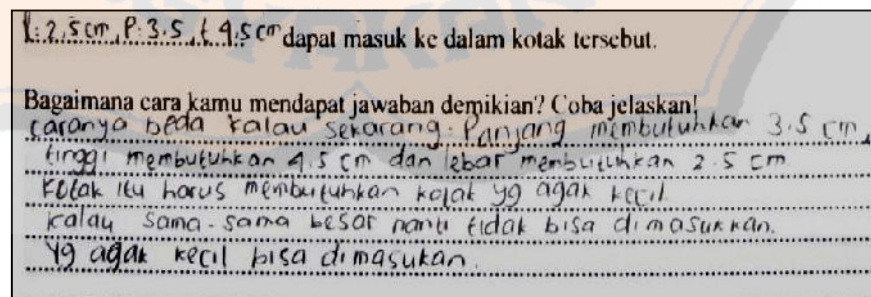 l: 2,5 cm, P: 3.5, t 4.5 cm dapat masuk ke dalam kotak tersebut.
Bagaimana cara kamu mendapat jawaban demikian? Coba jelaskan!
Caranya beda kalau sekarang. Panjang membutuhkan 3.5 cm,
tinggi membutuhkan 4.5 cm dan lebar membutuhkan 2.5 cm
Kotak itu harus membutuhkan kotak yg agak kecil
kalau sama-sama besar nanti tidak bisa dimasukkan.
Yg agak kecil bisa dimasukan.